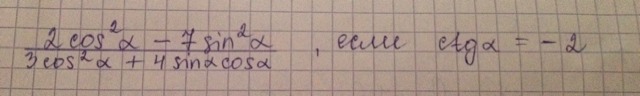 2 cos²α − 7 sin²α
3 cos²α + 4 sinα cosα , если ctgα = −2